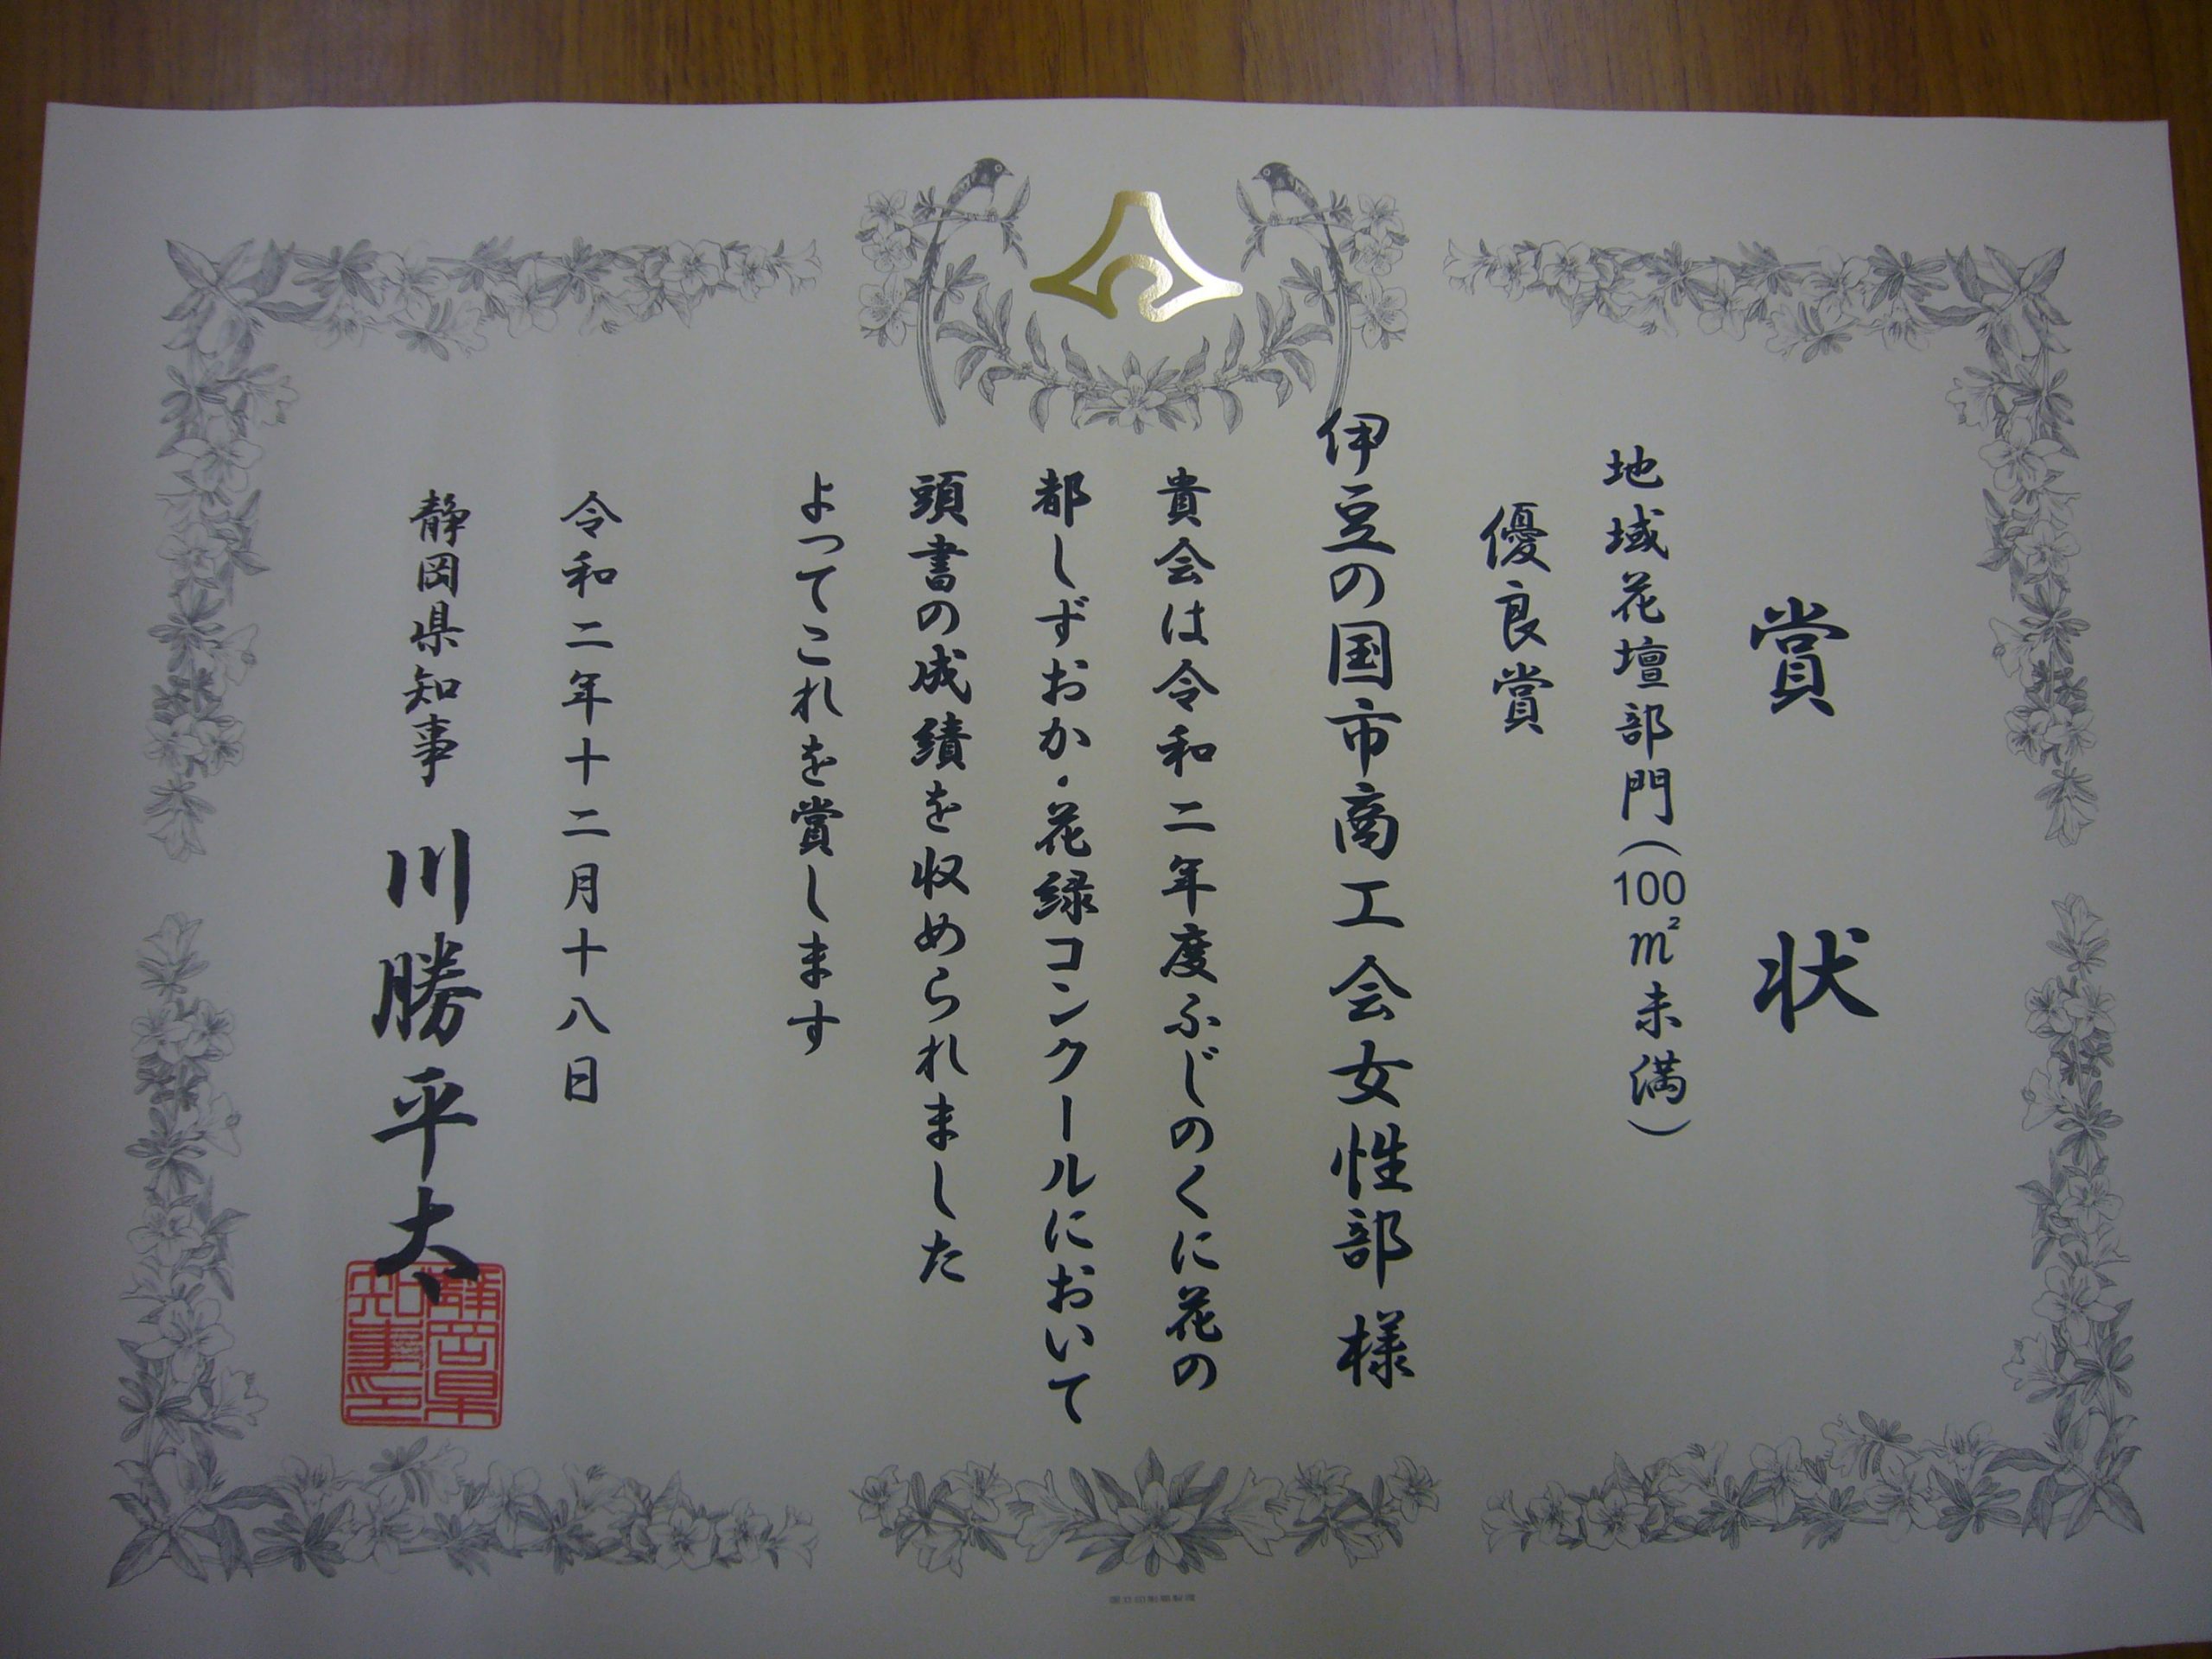 賞状
地域花壇部門(100㎡未満)
優良賞
伊豆の国市商工会女性部様
貴会は令和二年度ふじのくに花の
都しずおか・花緑コンクールにおいて
頭書の成績を収められました
よってこれを賞します
令和二年十二月十八日
静岡県知事 川勝平太
静岡県
知事之印